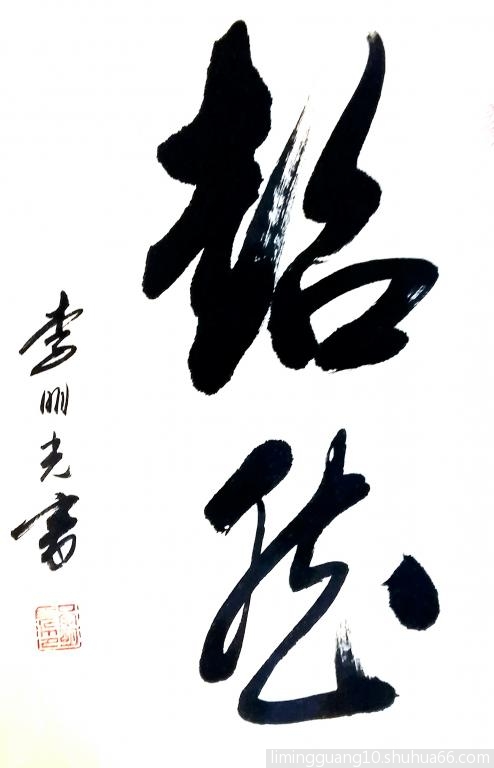 超然
李明光書
limingguang10.shuhua66.com